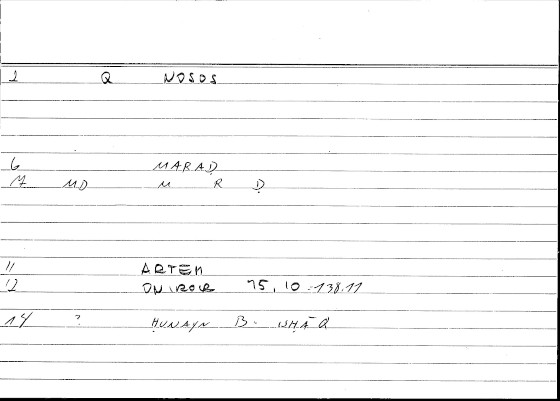 1 Q NOSOS
6 MARAḌ
7 MD M R Ḍ
11 ARTEM
12 ONIROCR 75,10 = 138.11
14 ? ḤUNAYN B. ISḤĀQ